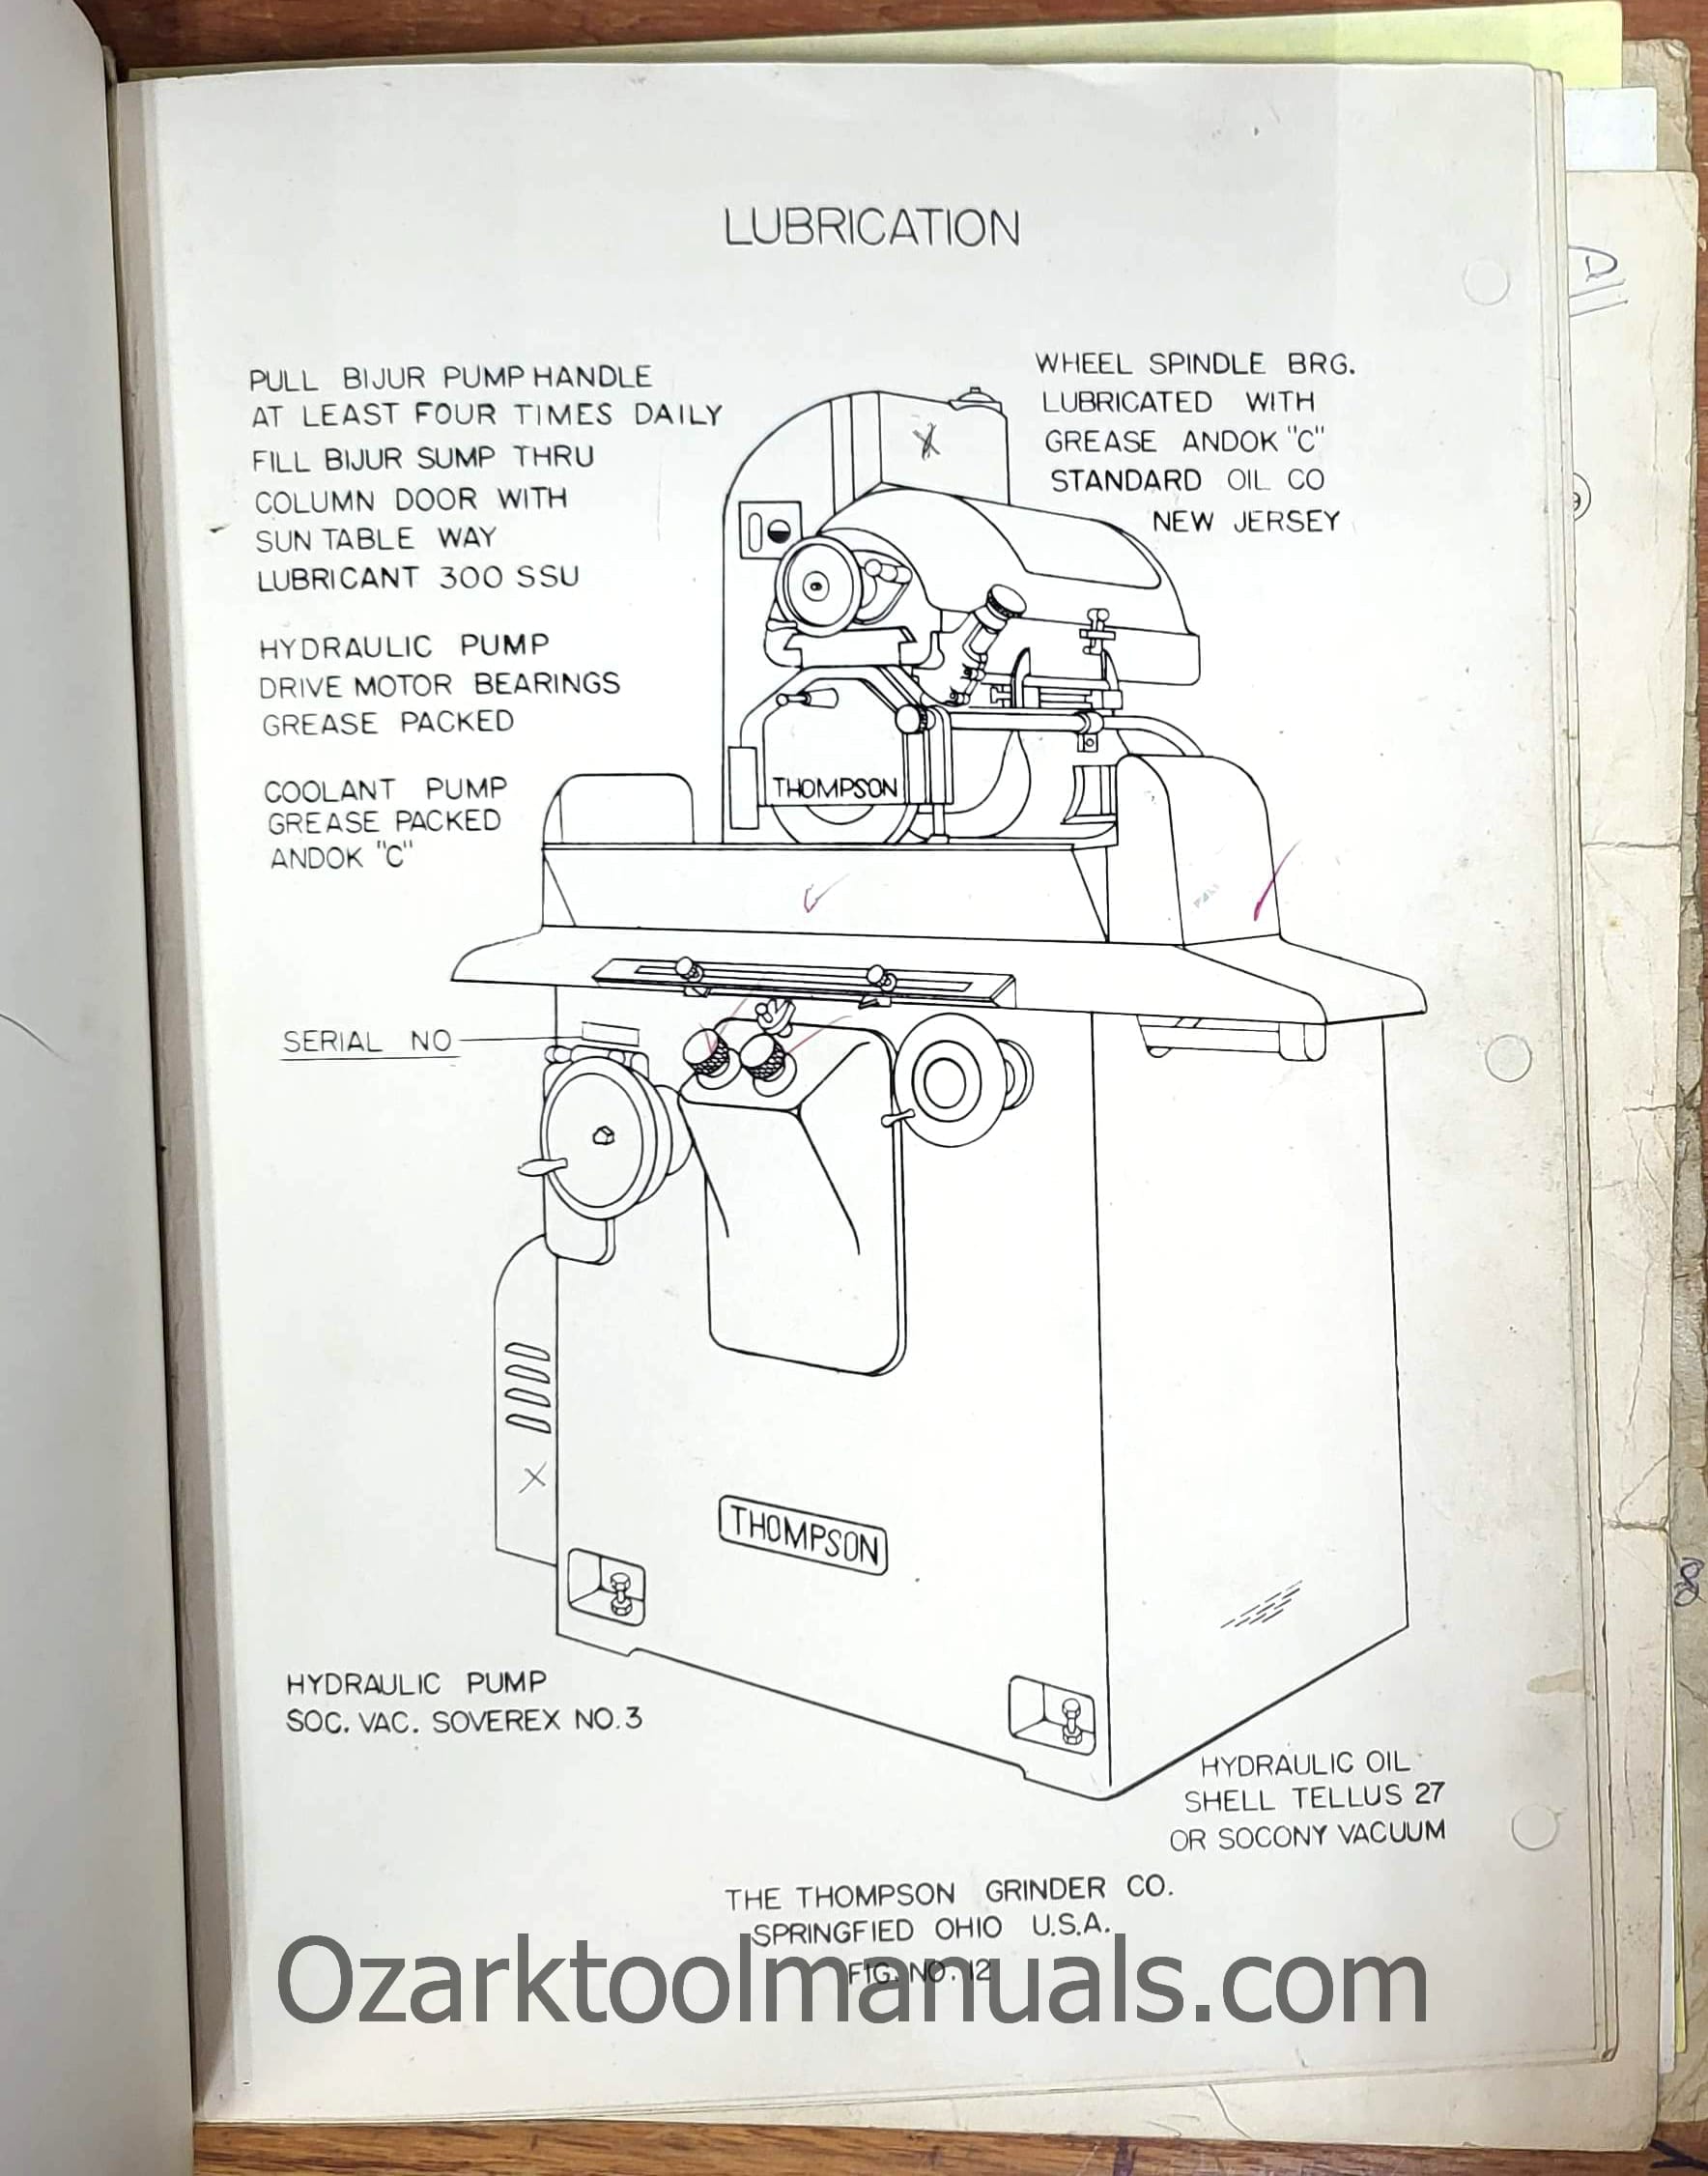 LUBRICATION
PULL BIJUR PUMP HANDLE
AT LEAST FOUR TIMES DAILY
FILL BIJUR SUMP THRU
COLUMN DOOR WITH
SUN TABLE WAY
LUBRICANT 300 SSU
WHEEL SPINDLE BRG.
LUBRICATED WITH
GREASE ANDOK "C"
STANDARD OIL CO
NEW JERSEY
X
All
HYDRAULIC PUMP
DRIVE MOTOR BEARINGS
GREASE PACKED
COOLANT PUMP
GREASE PACKED
ANDOK "C"
THOMPSON
SERIAL NO
X
THOMPSON
8
HYDRAULIC PUMP
SOC. VAC. SOVEREX NO.3
HYDRAULIC OIL
SHELL TELLUS 27
OR SOCONY VACUUM
THE THOMPSON GRINDER CO.
SPRINGFIED OHIO U.S.A.
FIG. NO. 12
Ozarktoolmanuals.com